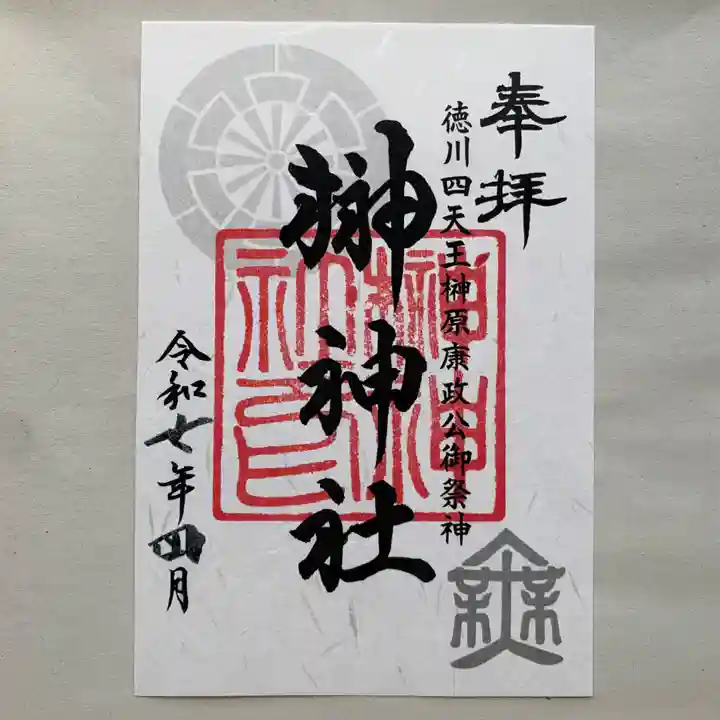 奉拝
徳川四天王榊原康政公御祭神
榊神社
令和七年四月